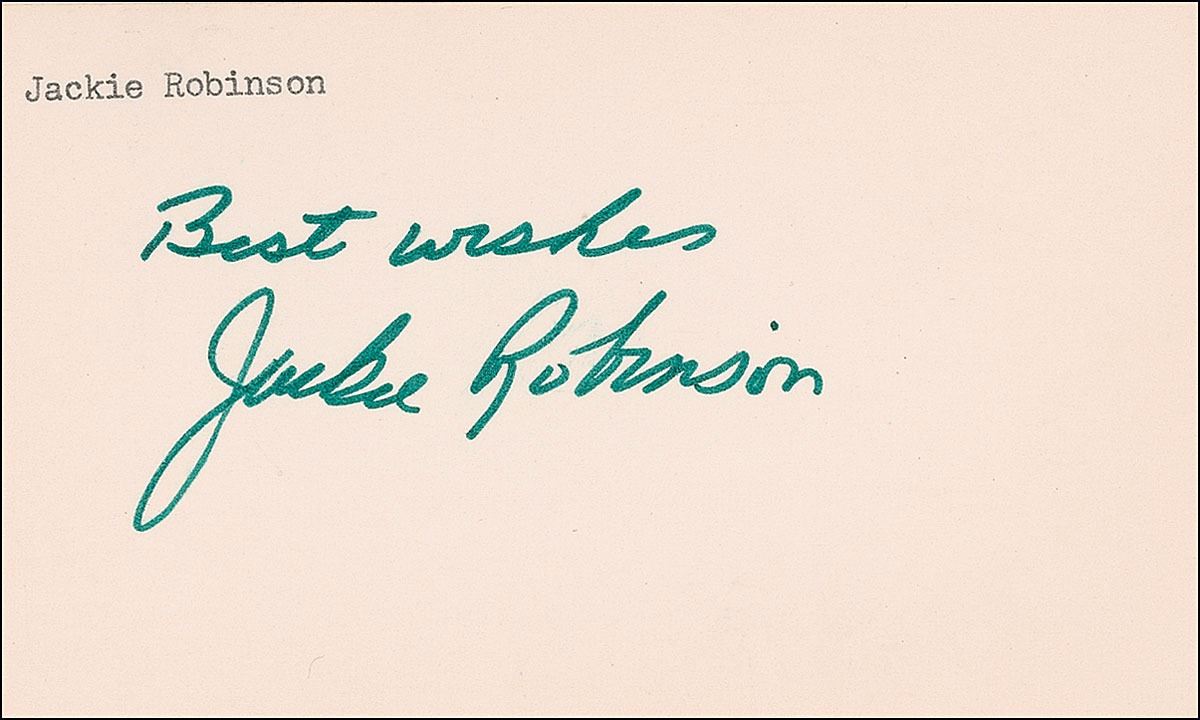 Jackie Robinson
Best wishes
Jackie Robinson